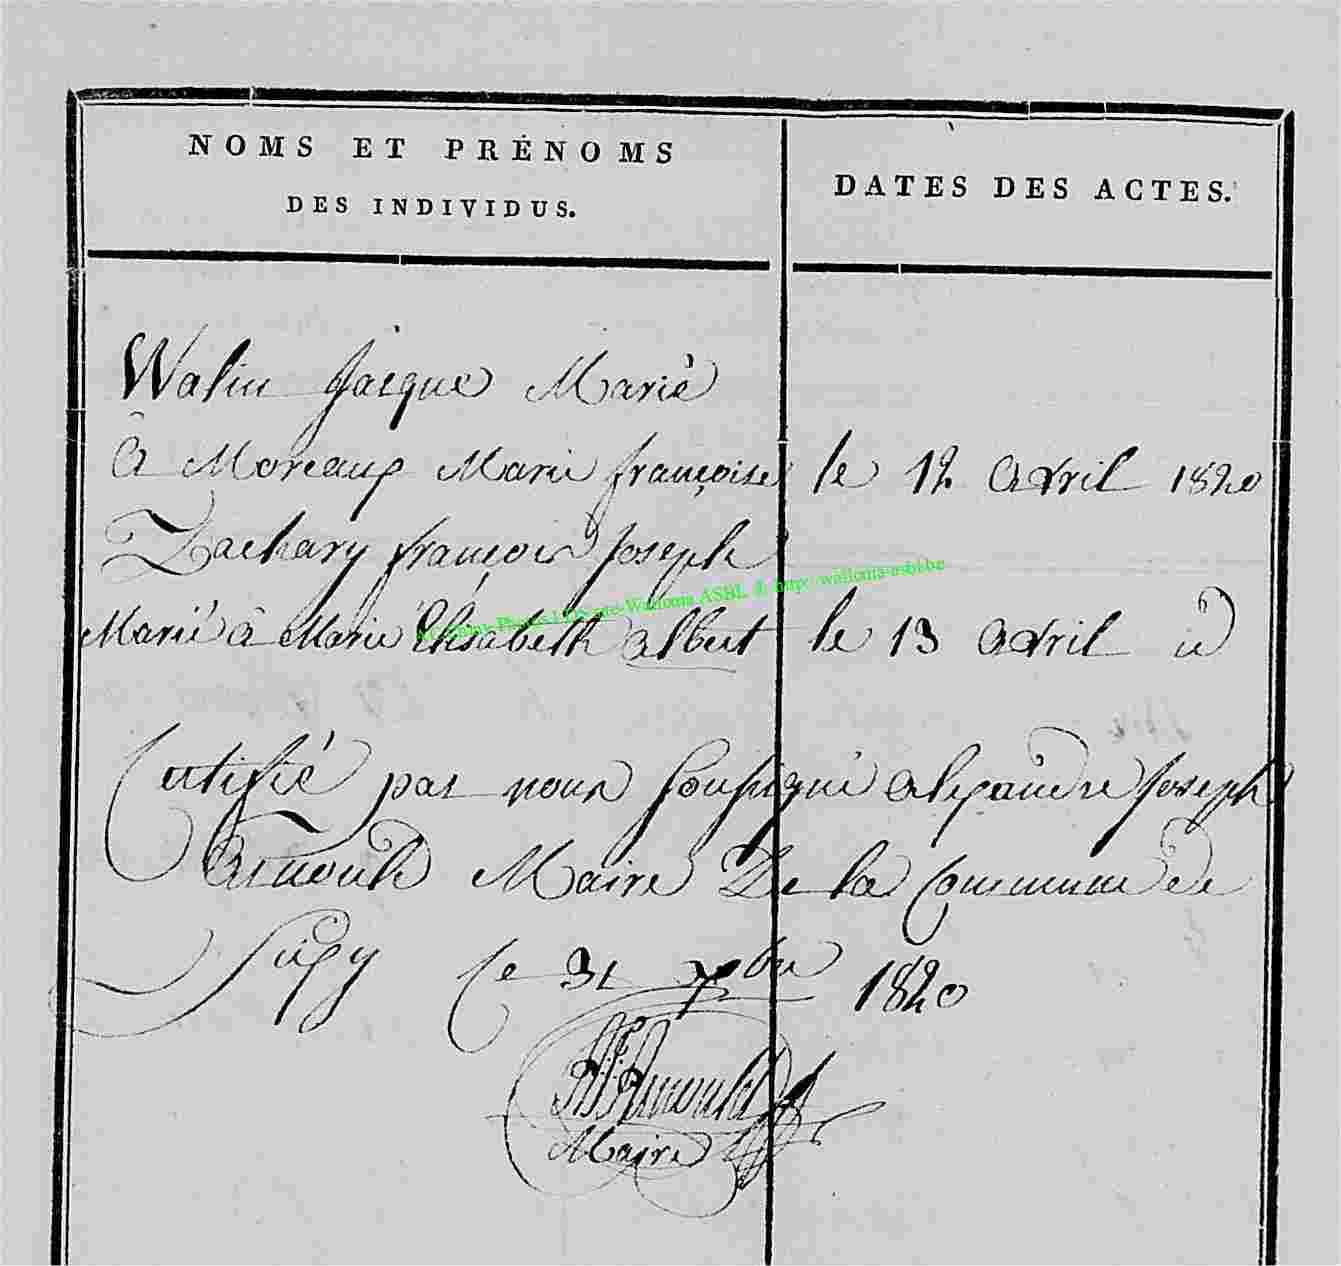 NOMS ET PRÉNOMS
DES INDIVIDUS.
DATES DES ACTES.
Walin Jacque Marié
à Moreaux Marie françoise le 12 Avril 1820
Zachary françois Joseph
Marié à Marie Elisabeth Albert le 13 Avril id
Certifié par nous soussigné Alexandre Joseph
Arnould Maire De la Commune de
Sugy le 31 Xbre 1820
A:J:Arnould
Maire